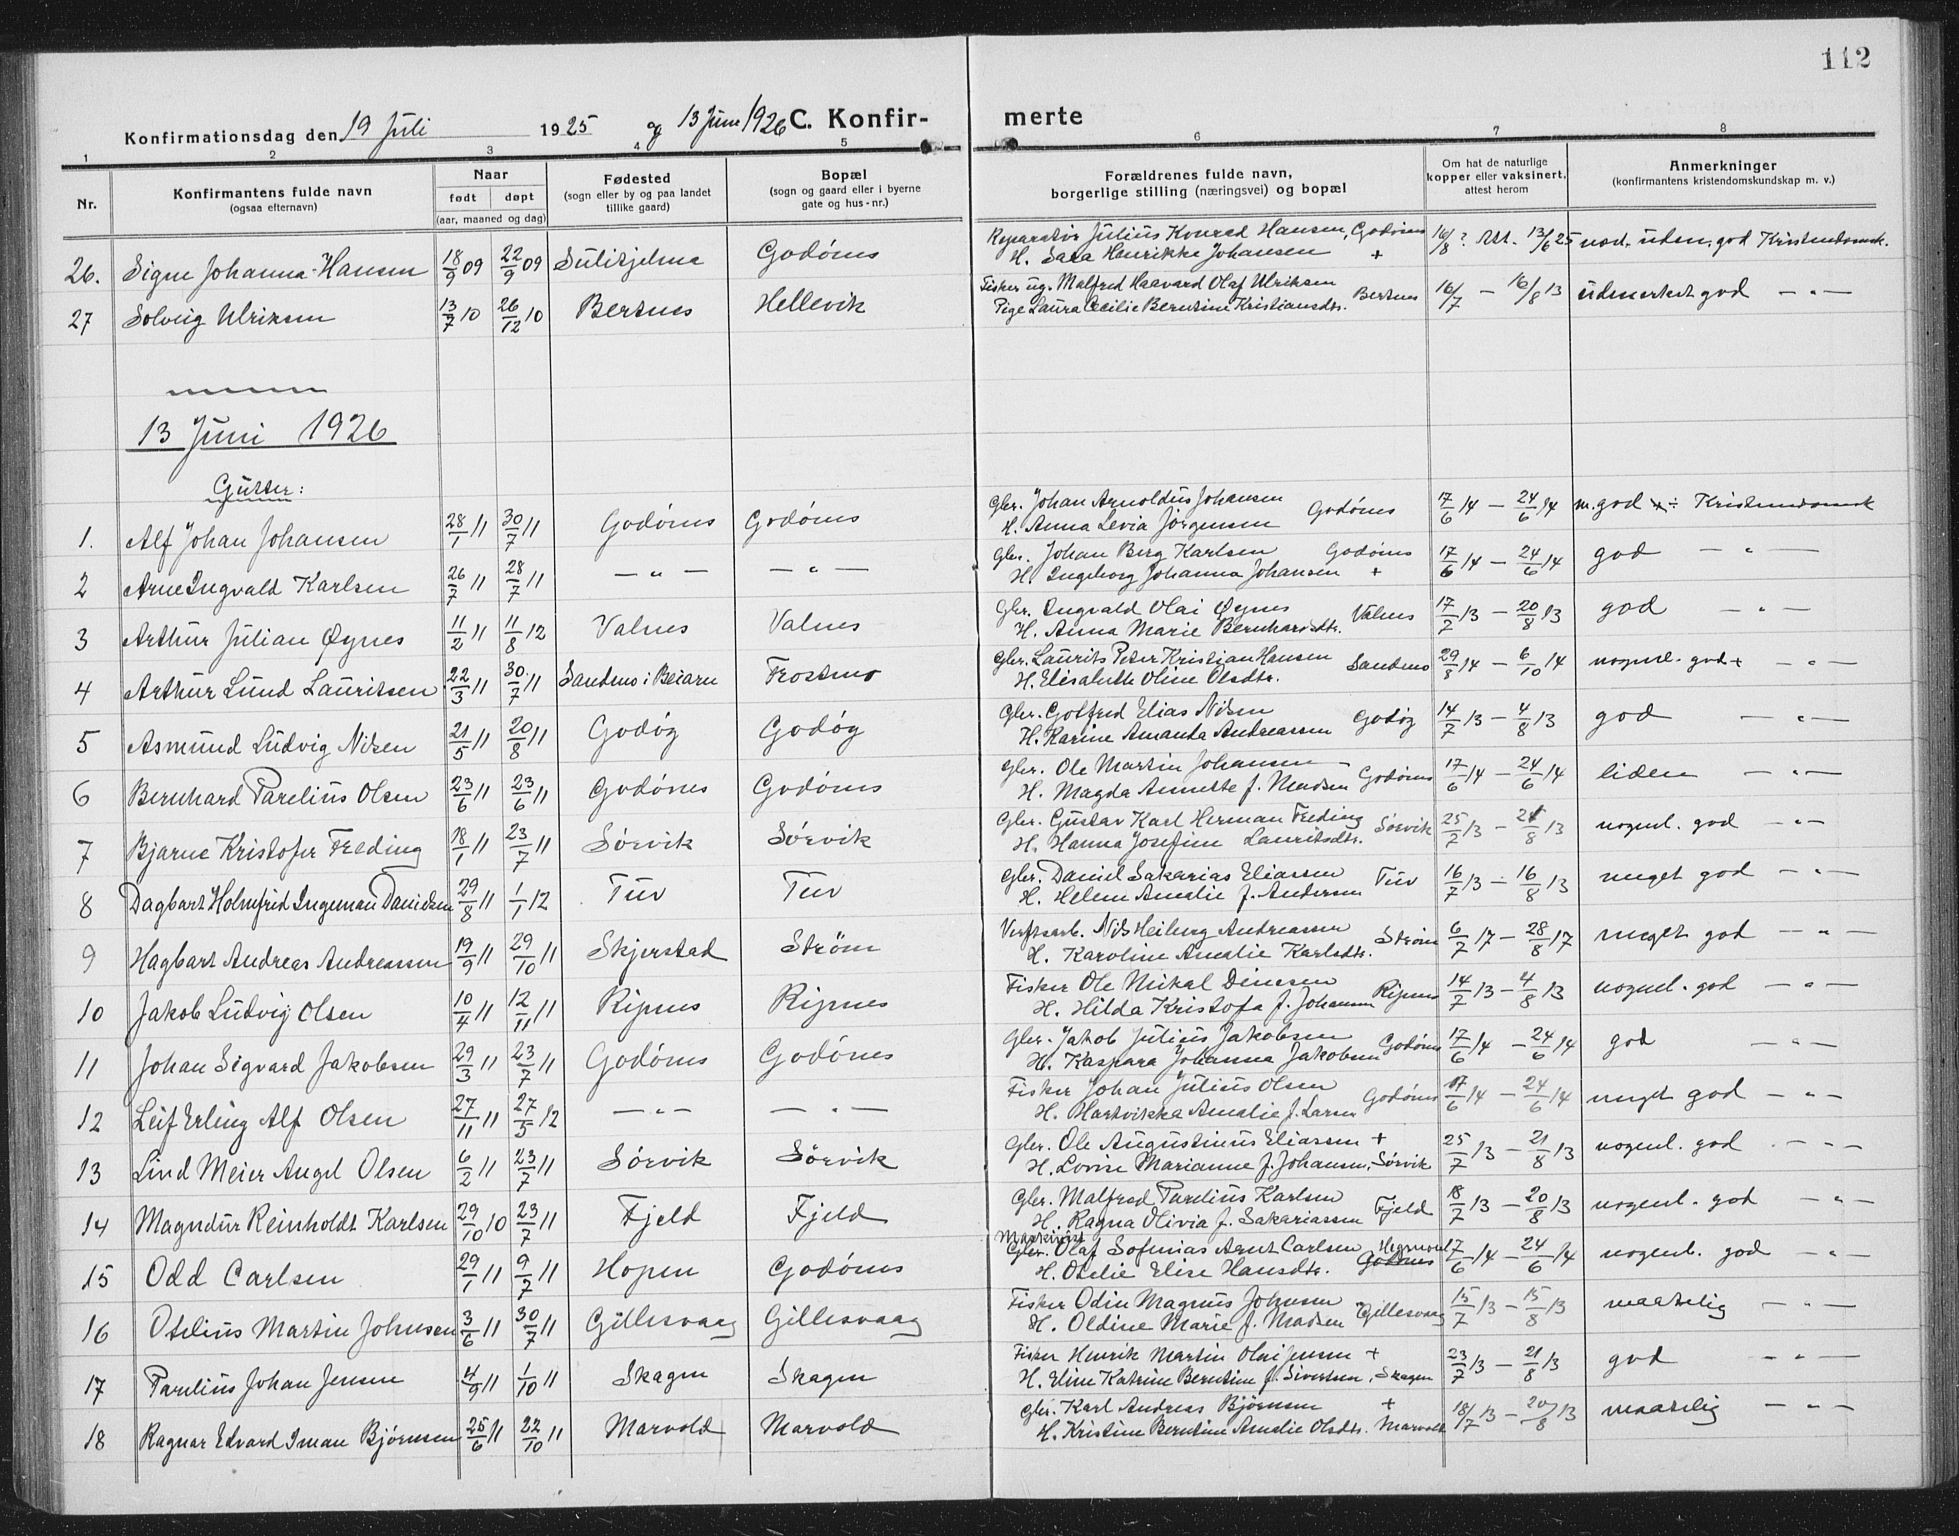 112
Konfirmationsdag den 19 Juli 1925 og 13 Juni 1926 C. Konfir- merte
1 2 3 4 5 6 7 8
Nr. Konfirmantens fulde navn (ogsaa efternavn) Naar født døpt (aar, maaned og dag) Fødested (sogn eller by og paa landet tillike gaard) Bopæl (sogn og gaard eller i byerne gate og hus-nr.) Forældrenes fulde navn, borgerlige stilling (næringsvei) og bopæl Om hat de naturlige kopper eller vaksinert, attest herom Anmerkninger (konfirmantens kristendomskundskap m. v.)
26. Signe Johanna Hansen 18/9 09 22/9 09 Sulitjelma Godønes Reparatør Julius Konrad Hansen, Godønes 16/8 ? Att. 13/6 25
H. Sara Henrikke Johansen +
27 Solveig Ulriksen 13/7 10 26/12 10 Bertnes Hellevik Fisker ug. Malfred Haavard Olaf Ulriksen Bertnes 16/7 — 16/8 13 udmerket god — " —
Pige Laura Cecilie Berntine Kristiansdtr.
13 Juni 1926
Gutter:
1. Alf Johan Johansen 28/1 11 30/7 11 Godønes Godønes Gbr. Johan Arnoldus Johansen Godønes 17/6 14 — 24/6 14 m. god
H. Anna Levia Jørgensen
2 Arne Ingvald Karlsen 26/3 11 28/7 11 — " — — " — Gbr. Johan Berg Karlsen Godønes 17/6 14 — 24/6 14 god — " —
H. Ingeborg Johanna Johansen +
3 Arthur Julian Øynes 11/2 11 11/8 12 Valnes Valnes Gbr. Ingvald Olai Øynes Valnes 17/7 13 — 20/8 13 god — " —
H. Anna Marie Bernhardsdtr.
4 Arthur Lund Lauritsen 22/3 11 30/7 11 Sandnes i Beiarn Frostmo Gbr. Laurits Peter Kristian Hansen Sandnes 29/8 14 — 6/10 14 nogenl. god + — " —
H. Elisabeth Oline Olsdtr.
5 Asmund Ludvig Nilsen 21/5 11 20/8 11 Godøy Godøy Gbr. Golfred Elias Nilsen Godøy 14/7 13 — 4/8 13 god — " —
H. Karine Amanda Andreassen
6 Bernhard Parelius Olsen 23/6 11 23/6 11 Godønes Godønes Gbr. Ole Martin Johansen Godønes 17/6 14 — 24/6 14 liden — " —
H. Magda Annette f. Madsen
7 Bjarne Kristofer Freding 18/1 11 23/7 11 Sørvik Sørvik Gbr. Gustav Karl Herman Freding Sørvik 25/7 13 — 21/8 13 nogenl. god — " —
H. Hanna Josefine Lauritsdtr.
8 Dagbart Holmfred Ingeman Danielsen 29/8 11 1/1 12 Tuv Tuv Gbr. Daniel Sakarias Eliassen Tuv 16/7 13 — 16/8 13 meget god — " —
H. Helene Amalie f. Andersen
9 Hagbart Andreas Andreassen 19/9 11 29/10 11 Skjerstad Strøm Verftsarb. Nils Heiberg Andreassen Strøm 6/7 17 — 28/8 17 meget god — " —
H. Karoline Amalie Karlsdtr.
10 Jakob Ludvig Olsen 10/4 11 12/11 11 Ripnes Ripnes Fisker Ole Mikal Dinesen Ripnes 14/7 13 — 4/8 13 nogenl. god — " —
H. Hilda Kristofa f. Johansen
11 Johan Sigvard Jakobsen 29/3 11 23/7 11 Godønes Godønes Gbr. Jakob Julius Jakobsen Godønes 17/6 14 — 24/6 14 god — " —
H. Kaspara Johanna Jakobsen
12 Leif Erling Alf Olsen 27/11 11 27/5 12 — " — — " — Fisker Johan Julius Olsen Godønes 17/6 14 — 24/6 14 meget god — " —
H. Hartvikka Amalie f. Larsen
13 Lind Meier Angel Olsen 6/2 11 23/7 11 Sørvik Sørvik Gbr. Ole Augustinus Eliassen + 25/7 13 — 21/8 13 nogenl. god — " —
H. Lovise Marianne f. Johansen, Sørvik
14 Magndur Reinholdt Karlsen 29/10 10 23/7 11 Fjeld Fjeld Gbr. Malfred Parelius Karlsen Fjeld 18/7 13 — 20/8 13 nogenl. god — " —
H. Ragna Olivia f. Sakariassen
15 Odd Carlsen 29/1 11 9/7 11 Hopen Godønes Maskinist Gbr. Olaf Sofinias Arnt Carlsen Godønes 17/6 14 — 24/6 14 nogenl. god — " —
H. Otelie Elise Hansdtr.
16 Otelius Martin Johnsen 3/6 11 30/7 11 Gillesvaag Gillesvaag Fisker Odin Magnus Johnsen Gillesvaag 15/7 13 — 15/8 13 maatelig — " —
H. Oldine Marie f. Madsen
17 Parelius Johan Jensen 4/9 11 1/10 11 Skagen Skagen Fisker Henrik Martin Olai Jensen + 23/7 13 — 21/8 13 god — " —
H. Eline Katrine Berntine f. Sivertsen, Skagen
18 Ragnar Edvard Iman Bjørnsen 25/6 11 22/10 11 Marvold Marvold Gbr. Karl Andreas Bjørnsen + 18/7 13 — 20/8 13 maatelig — " —
H. Kristine Berntine Amalie Olsdtr. Marvold